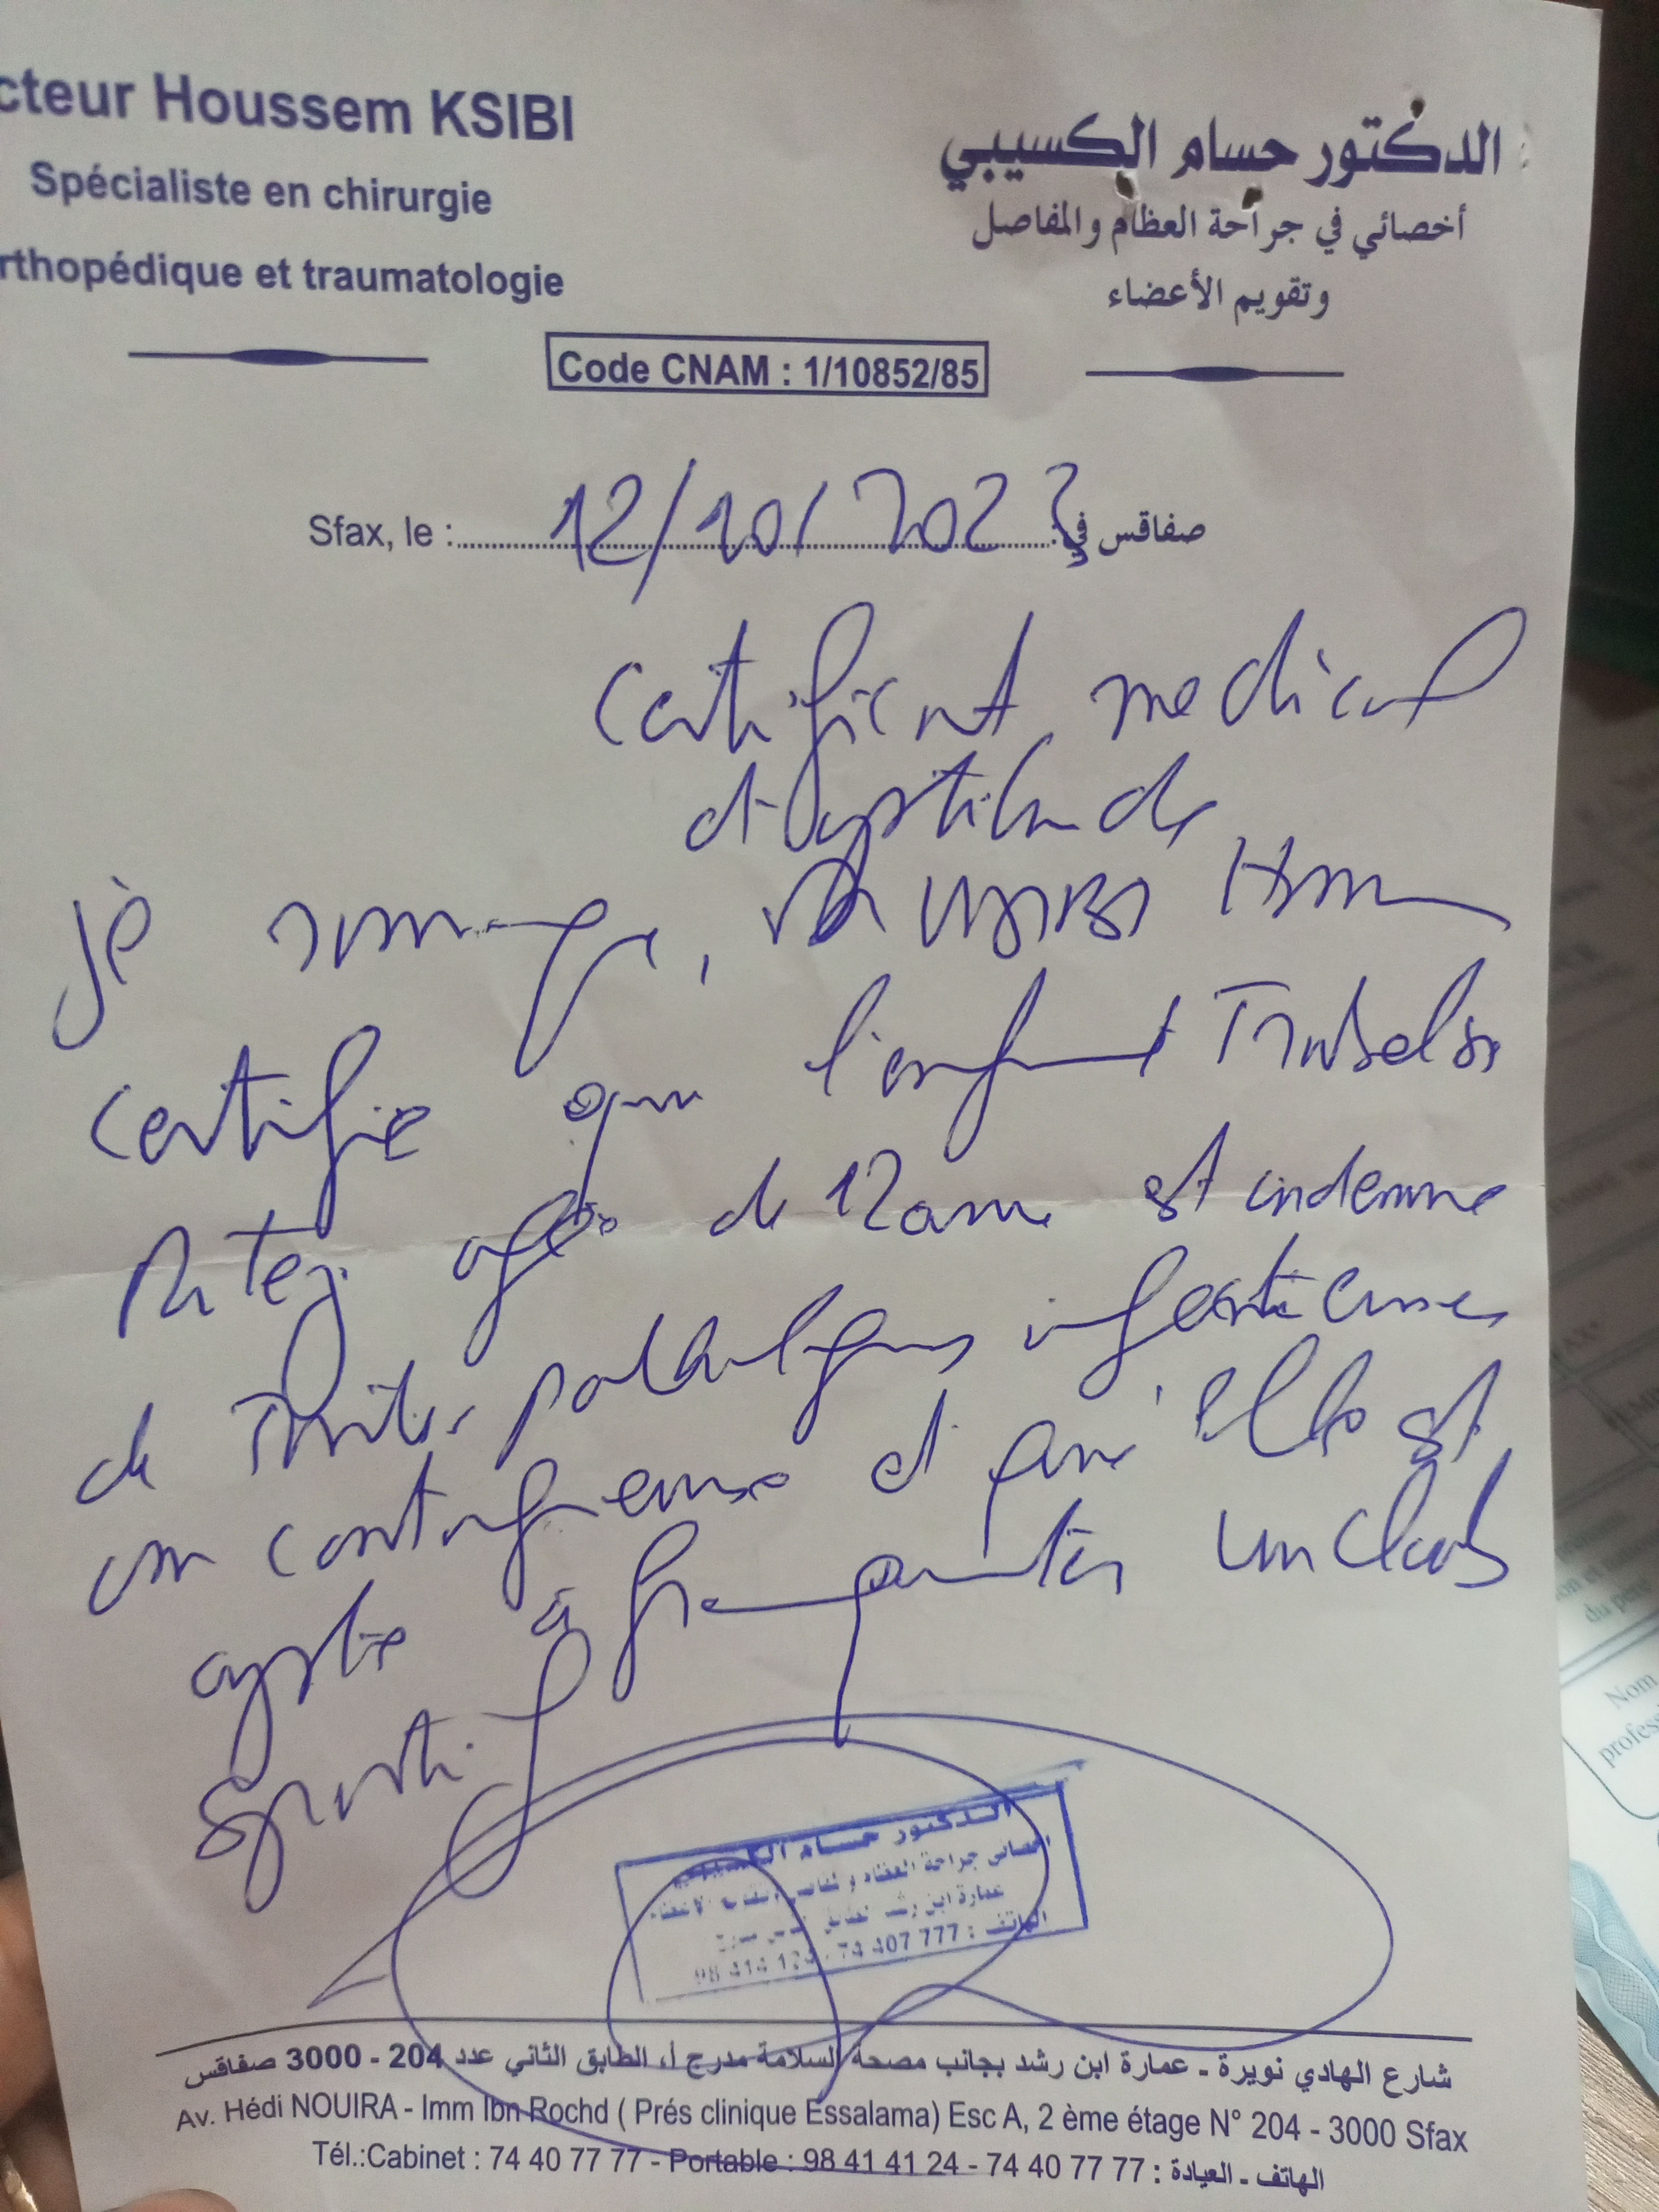 cteur Houssem KSIBI
Spécialiste en chirurgie
rthopédique et traumatologie
الدكتور حسام الكسيبي
أخصائي في جراحة العظام والمفاصل
وتقويم الأعضاء
Code CNAM : 1/10852/85
Sfax, le : 12/10/202 صفاقس في :
Certificat medical
d'aptitude
je soussigné, Dr KSIBI
certifie que l'enfant
agée de 12 ans est indemne
de toutes pathologies infectieuses
ou contagieuse et qu'elle est
apte à fréquenter un club
sportif
الدكتور حسام الكسيبي
أخصائي جراحة العظام و المفاصل وتقويم الأعضاء
عمارة ابن رشد
الهاتف : 777 407 74
شارع الهادي نويرة - عمارة ابن رشد بجانب مصحة السلامة مدرج أ، الطابق الثاني عدد 204 - 3000 صفاقس
Av. Hédi NOUIRA - Imm Ibn Rochd ( Prés clinique Essalama) Esc A, 2 ème étage N° 204 - 3000 Sfax
Tél.:Cabinet : 74 40 77 77 - Portable : 98 41 41 24 - 74 40 77 77 : الهاتف - العيادة
Nom
profess
du père